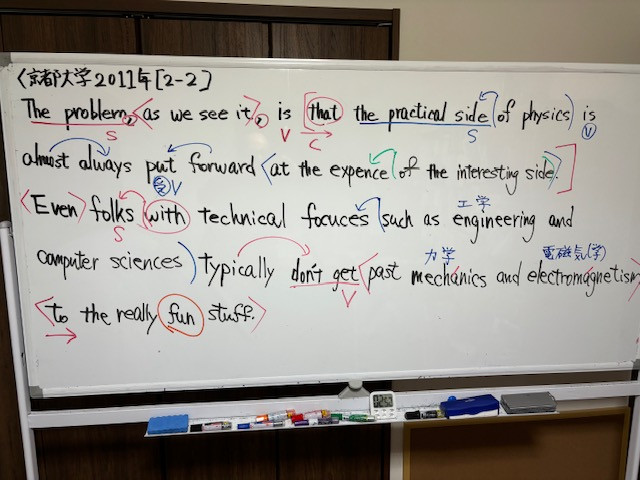 〈京都大学2011年[2-2]
The problem, 〈as we see it〉, is [that the practical side (of physics) is
S V C S V
almost always put forward 〈at the expence (of the interesting side)〉.]
受V
〈Even〉 folks (with technical focuces (such as engineering and
S 工学
computer sciences) typically don't get 〈past mechanics and electromagnetism〉
V 力学 電磁気(学)
〈to the really fun stuff.〉